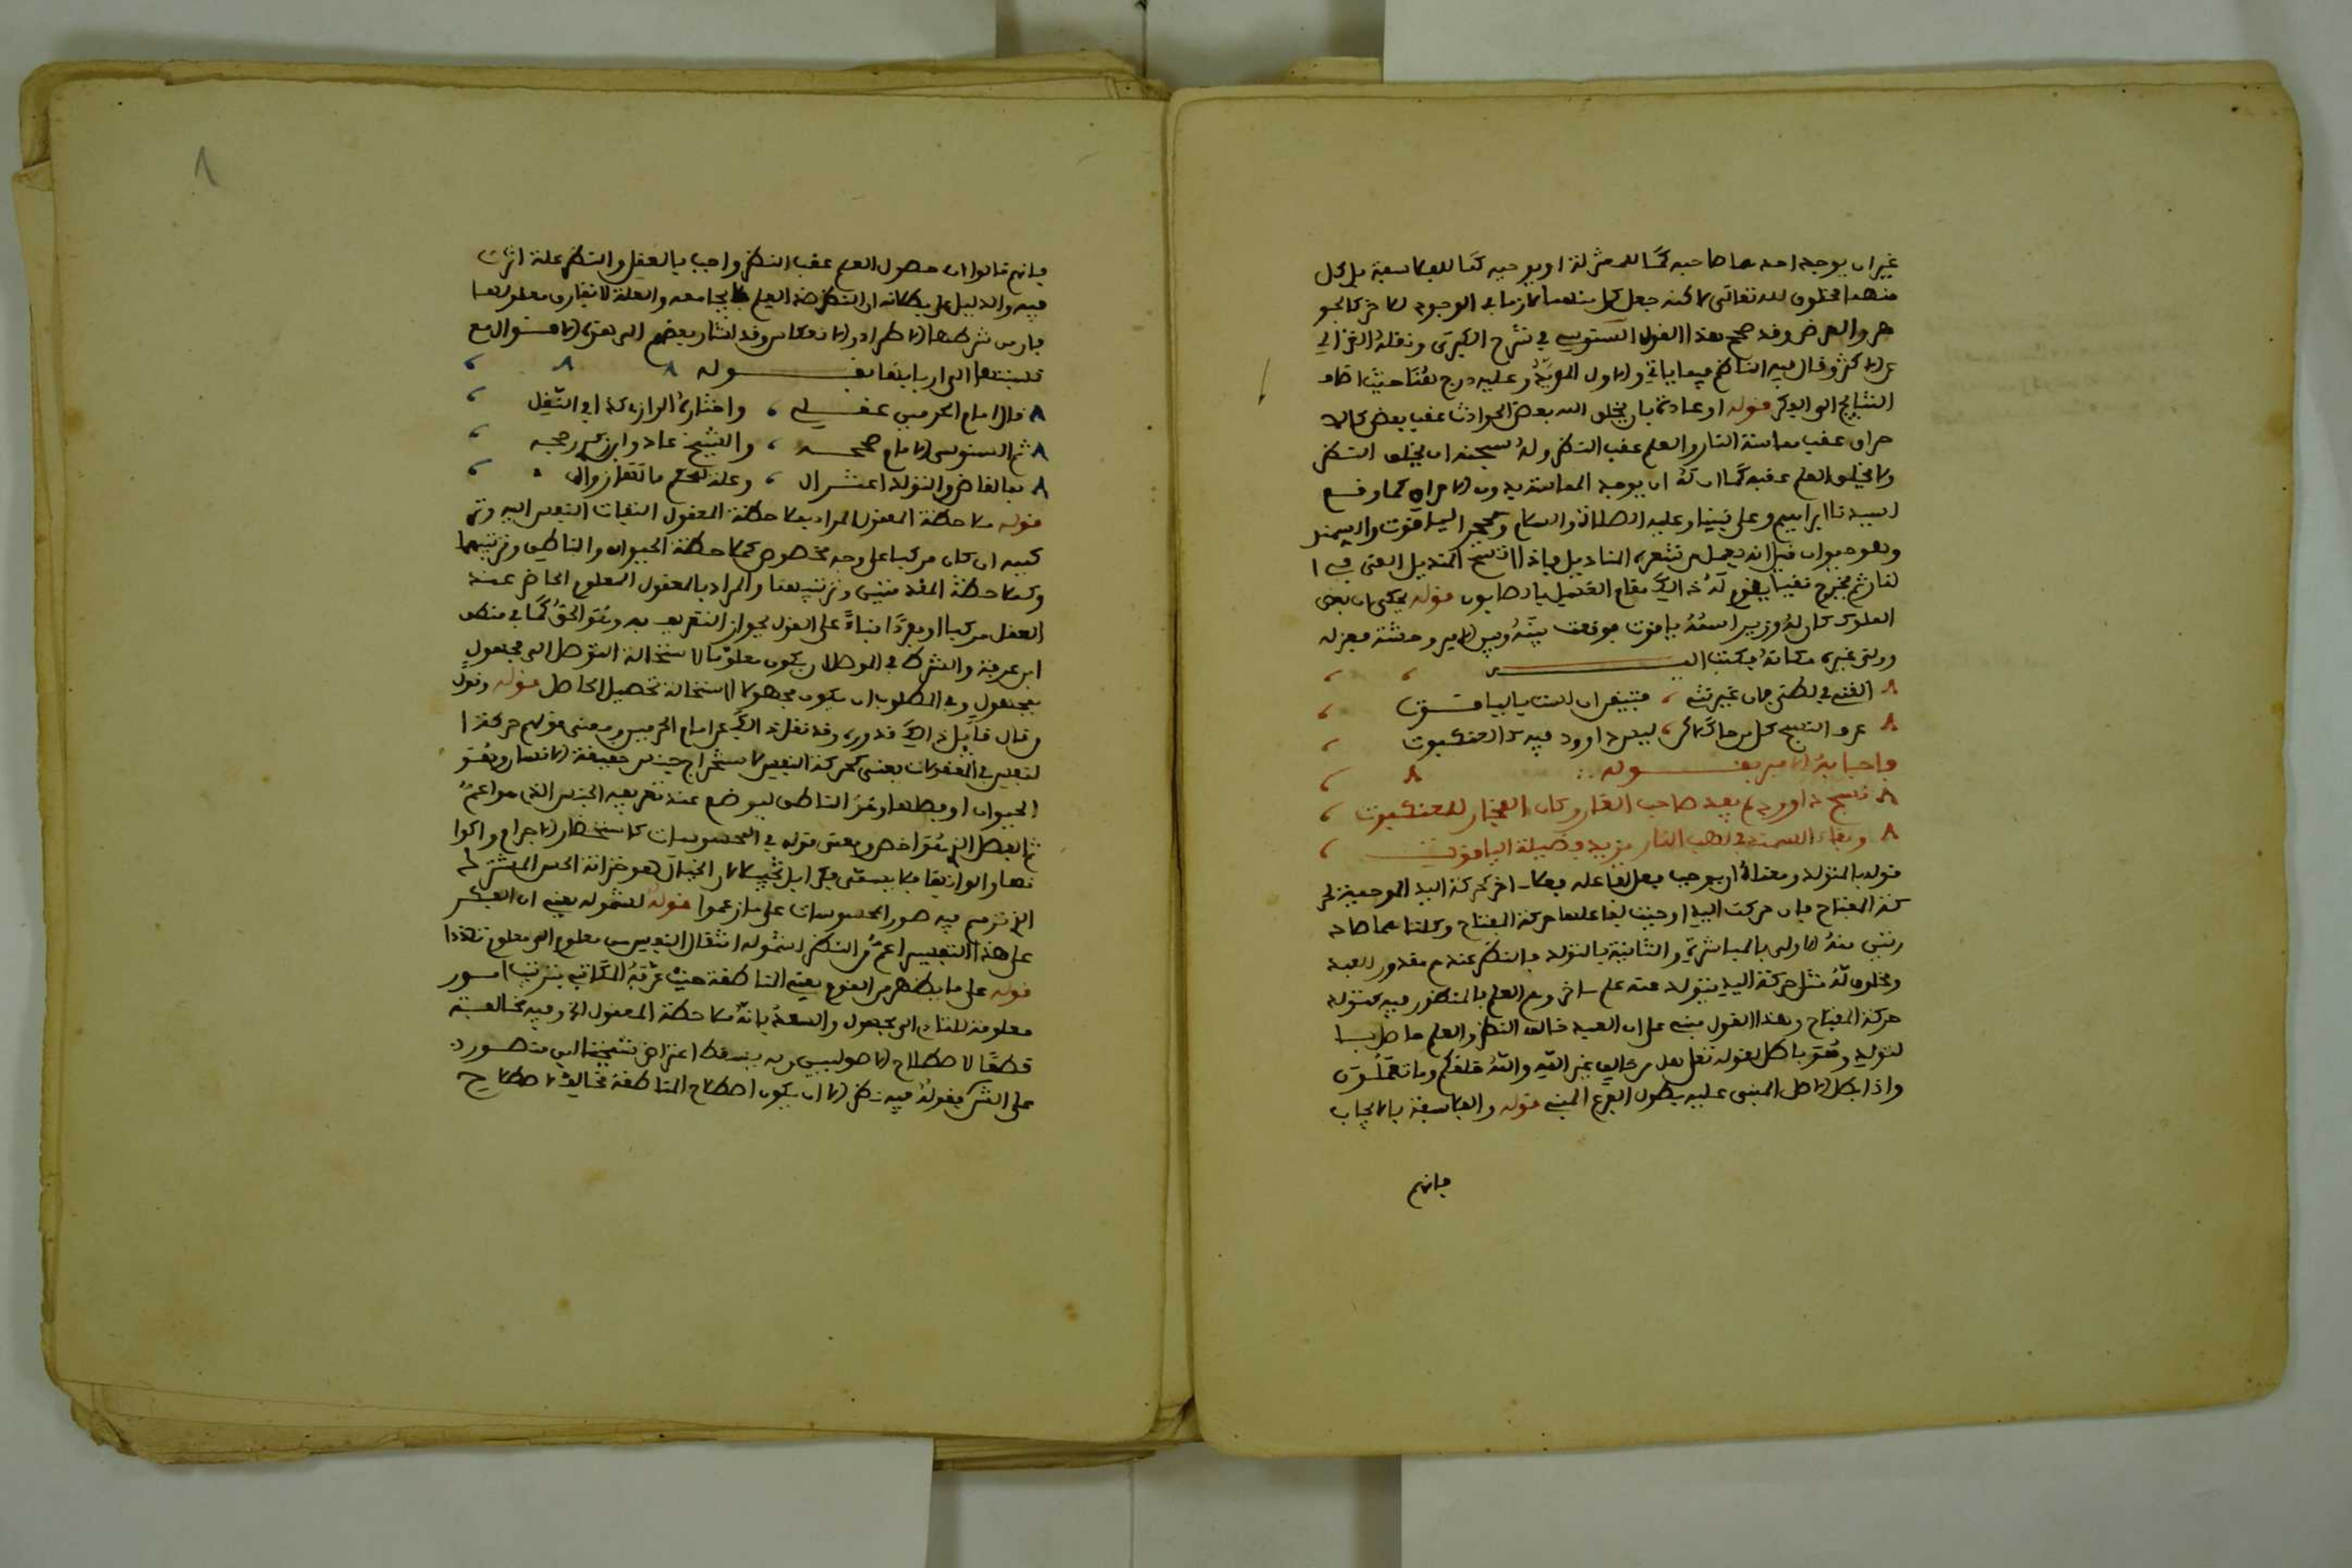 غير ان يوجد احدهما صاحبه كما للمعتزلة او يوجبه كما للفلاسفة بل كل
منهما مخلوق لله تعالى لاكنه جعل كلا منهما ملازما في الوجود للاخر كالجو
هر والعرض وقد صحح هذا القول السنوسي في شرح الكبرى ونقله الغزالي
عن الاكثر وقال فيه الناظم فيما ياتي والاول المؤيد وعليه درج هنا حيث اضاف
النتايج الى الفكر قوله او عادة بان يخلق الله بعض الحوادث عقب بعض كالا
حراق عقب مماسة النار والعلم عقب النظر وله سبحنه ان يخلق النظر
ولا يخلق العلم عقبه كما ان له ان يوجد المماسة بدون الاحراق كما وقع
لسيدنا ابراهيم وعلى نبينا وعليه الصلاة والسلام وحجر الياقوت والسمند
وهو حيوان قيل انه يعمل من شعره المناديل فاذا اتسخ المنديل القي في ا
لنار ثم يخرج نقيا يقوم له ذالك مقام الغسيل بالصابون قوله يحكى ان بعض
الملوك كان له وزير اسمه ياقوت فوقعت بينه وبين الامير وحشة فعزله
وولى غيره مكانه فكتب اليه
القني في لظى فان غيرتني ، فتيقن ان لست بالياقوت
عرف النسج كل من حاك لاكن ، ليس داوود فيه كالعنكبوت
واجابه الامير بقوله
نسج داوود لم يفد صاحب الغار وكان الفخار للعنكبوت
وبقاء السمند في لهب النار مزيد فضيلة الياقوت
قوله بالتولد ومعناه ان يوجب فعل لفاعله فعلا اخر كحركة اليد الموجبة لحر
كة المفتاح فان حركة اليد اوجبت لفاعلها حركة المفتاح وكلتاهما صاد
رتين منه الاولى بالمباشرة والثانية بالتولد فالنظر عندهم مقدور للعبد
ومخلوق له مثل حركة اليد يتولد عنه علم اخر وهو العلم بالمنظور فيه كتولد
حركة المفتاح وهذا القول مبني على ان العبد خالق النظر والعلم حاصل با
لتوليد وهو باطل لقوله تعلى هل من خالق غير الله والله خلقكم وما تعملون
واذا بطل الاصل المبني عليه بطل الفرع المبني قوله والفلاسفة بالايجاب
فانهم
فانهم قالوا ان حصول العلم عقب النظر واجب بالعقل والنظر علة اثرت
فيه والدليل على بطلانه ان النظر ضد العلم لا يجامعه والعلة لا تفارق معلولها
فان من شرطها الاطراد والانعكاس وقد اشار بعضهم الى هذه الاقوال مع
نسبتها الى اربابها بقوله
قال امام الحرمين عقلي ، واختاره الرازي كذا في النقل
ثم السنوسي الامام صححه ، والشيخ عادي رجحه
بالقاض والتولد اعتزال ، وعلة
قوله ملاحظة المعقول المراد بملاحظة المعقول التفات النفس اليه وتر
كيبه ان كان مركبا على وجه مخصوص كملاحظة الحيوان والناطق وترتيبهما
وكملاحظة المقدمتين وترتيبهما والمراد بالمعقول المعلوم الحاضر عند
العقل مركبا او مفردا بناءً على القول بجواز التعريف به وهو الحق كما في منطق
ابن عرفة والشرط في الموصل ان يكون معلوما لاستحالة التوصل الى مجهول
بمجهول وفي المطلوب ان يكون مجهولا لاستحالة تحصيل الحاصل قوله وقول
من قال قابل ذالك قدوره وقد نقل ذالك عن امام الحرمين ومعنى قولهم حركة ا
لنفس في المعقولات يعني كحركة النفس لاستخراج جنس حقيقة الانسان وهو
الحيوان او فصلها وهو الناطق ليوضع عند تعريفه الجنس الذي هو اعم
ثم الفصل الذي هو اخص ومعنى قوله في المحسوسات كاستحضار الاجرام والوا
نها والوانها فلا يسمى فكرا بل تخييلا لان الخيال هو خزانة الحس المشترك
الذي ترتسم فيه صور المحسوسات على ما زعموا قوله لشموله يعني ان الفكر
على هذا التفسير اعم من النظر لشموله انتقال النفس من معلوم الى معلوم تعددا
قوله على ما يظهر من القوم يعني المناطقة حيث عرفه الكاتبي بترتيب امور
معلومة للتادي الى مجهول والسعد بانه ملاحظة المعقول الخ وفيه مخالفة
قطعا لاصطلاح الاصوليين وبه يسقط اعتراض شيخنا ابن منصور
على الشرح بقوله فيه نظر الا ان يكون اصطلاح المناطقة مخالفا لاصطلاح